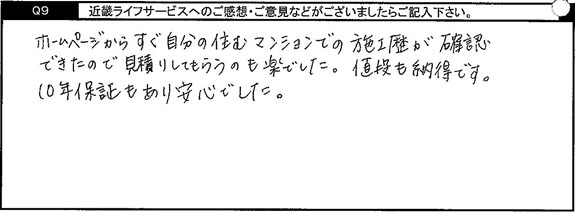 Q9 近畿ライフサービスへのご感想・ご意見などがございましたらご記入下さい。
ホームページからすぐ自分の住むマンションでの施工歴が確認
できたので見積りしてもらうのも楽でした。値段も納得です。
10年保証もあり安心でした。